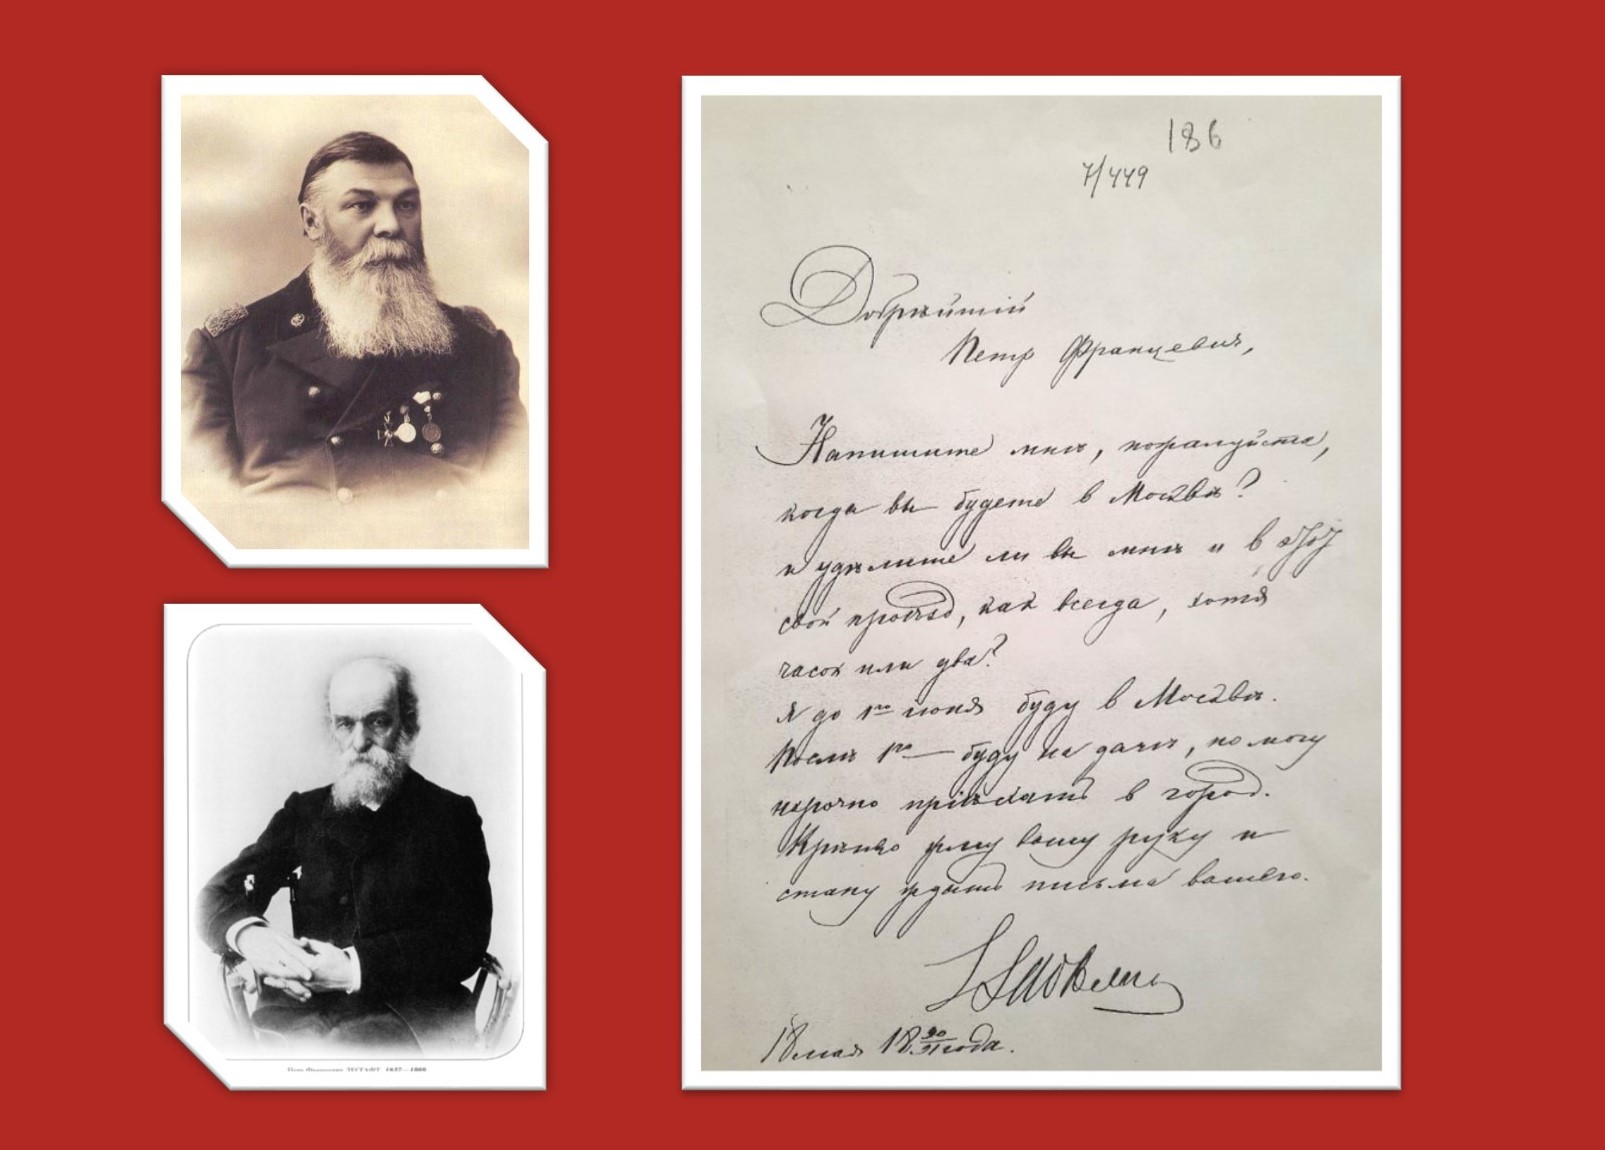 186
7/449
Добрѣйшій
Петр Францевич,
Напишите мнѣ, пожалуйста,
когда вы будете в Москвѣ?
и удѣлите ли вы мнѣ и в этот
свой проѣзд, как всегда, хотя
часок или два?
Я до 1го июня буду в Москвѣ.
Послѣ 1го — буду на дачѣ, но могу
нарочно приѣхать в город.
Крѣпко жму вашу руку и
стану ждать письма вашего.
18 мая 18 90/91 года.
ЛЕСГАФТ 1837—1909